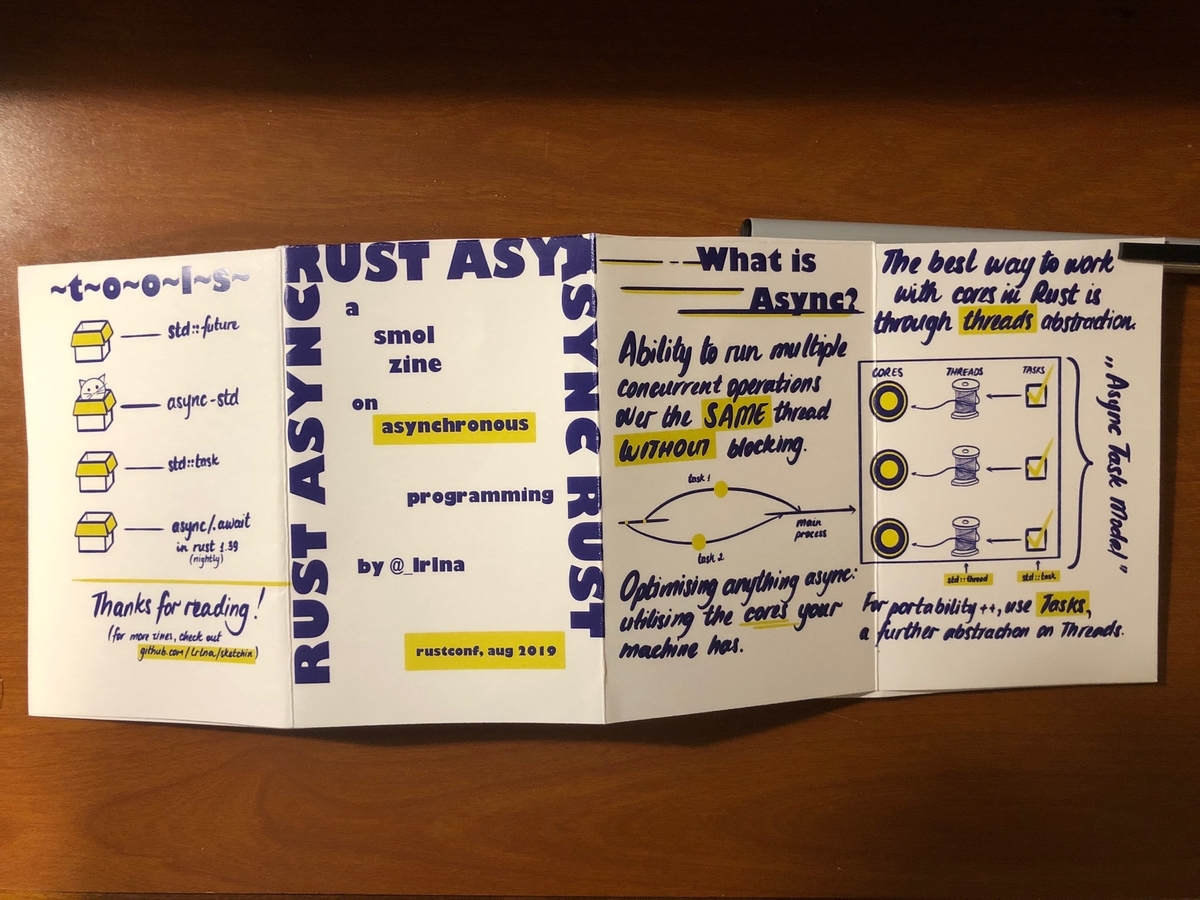 ~t~o~o~l~s~
std::future
async-std
std::task
async/.await
in rust 1.39
(nightly)
Thanks for reading!
(for more zines, check out
github.com/lrlna/sketchin)
RUST ASYNC
RUST ASY
ASYNC RUST
a
smol
zine
on
asynchronous
programming
by @_lrlna
rustconf, aug 2019
What is
Async?
Ability to run multiple
concurrent operations
over the SAME thread
WITHOUT blocking.
task 1
task 2
main
process
Optimising anything async:
utilising the cores your
machine has.
The best way to work
with cores in Rust is
through threads abstraction.
CORES THREADS TASKS
std::thread std::task
„Async Task Model"
For portability ++, use Tasks,
a further abstraction on Threads.